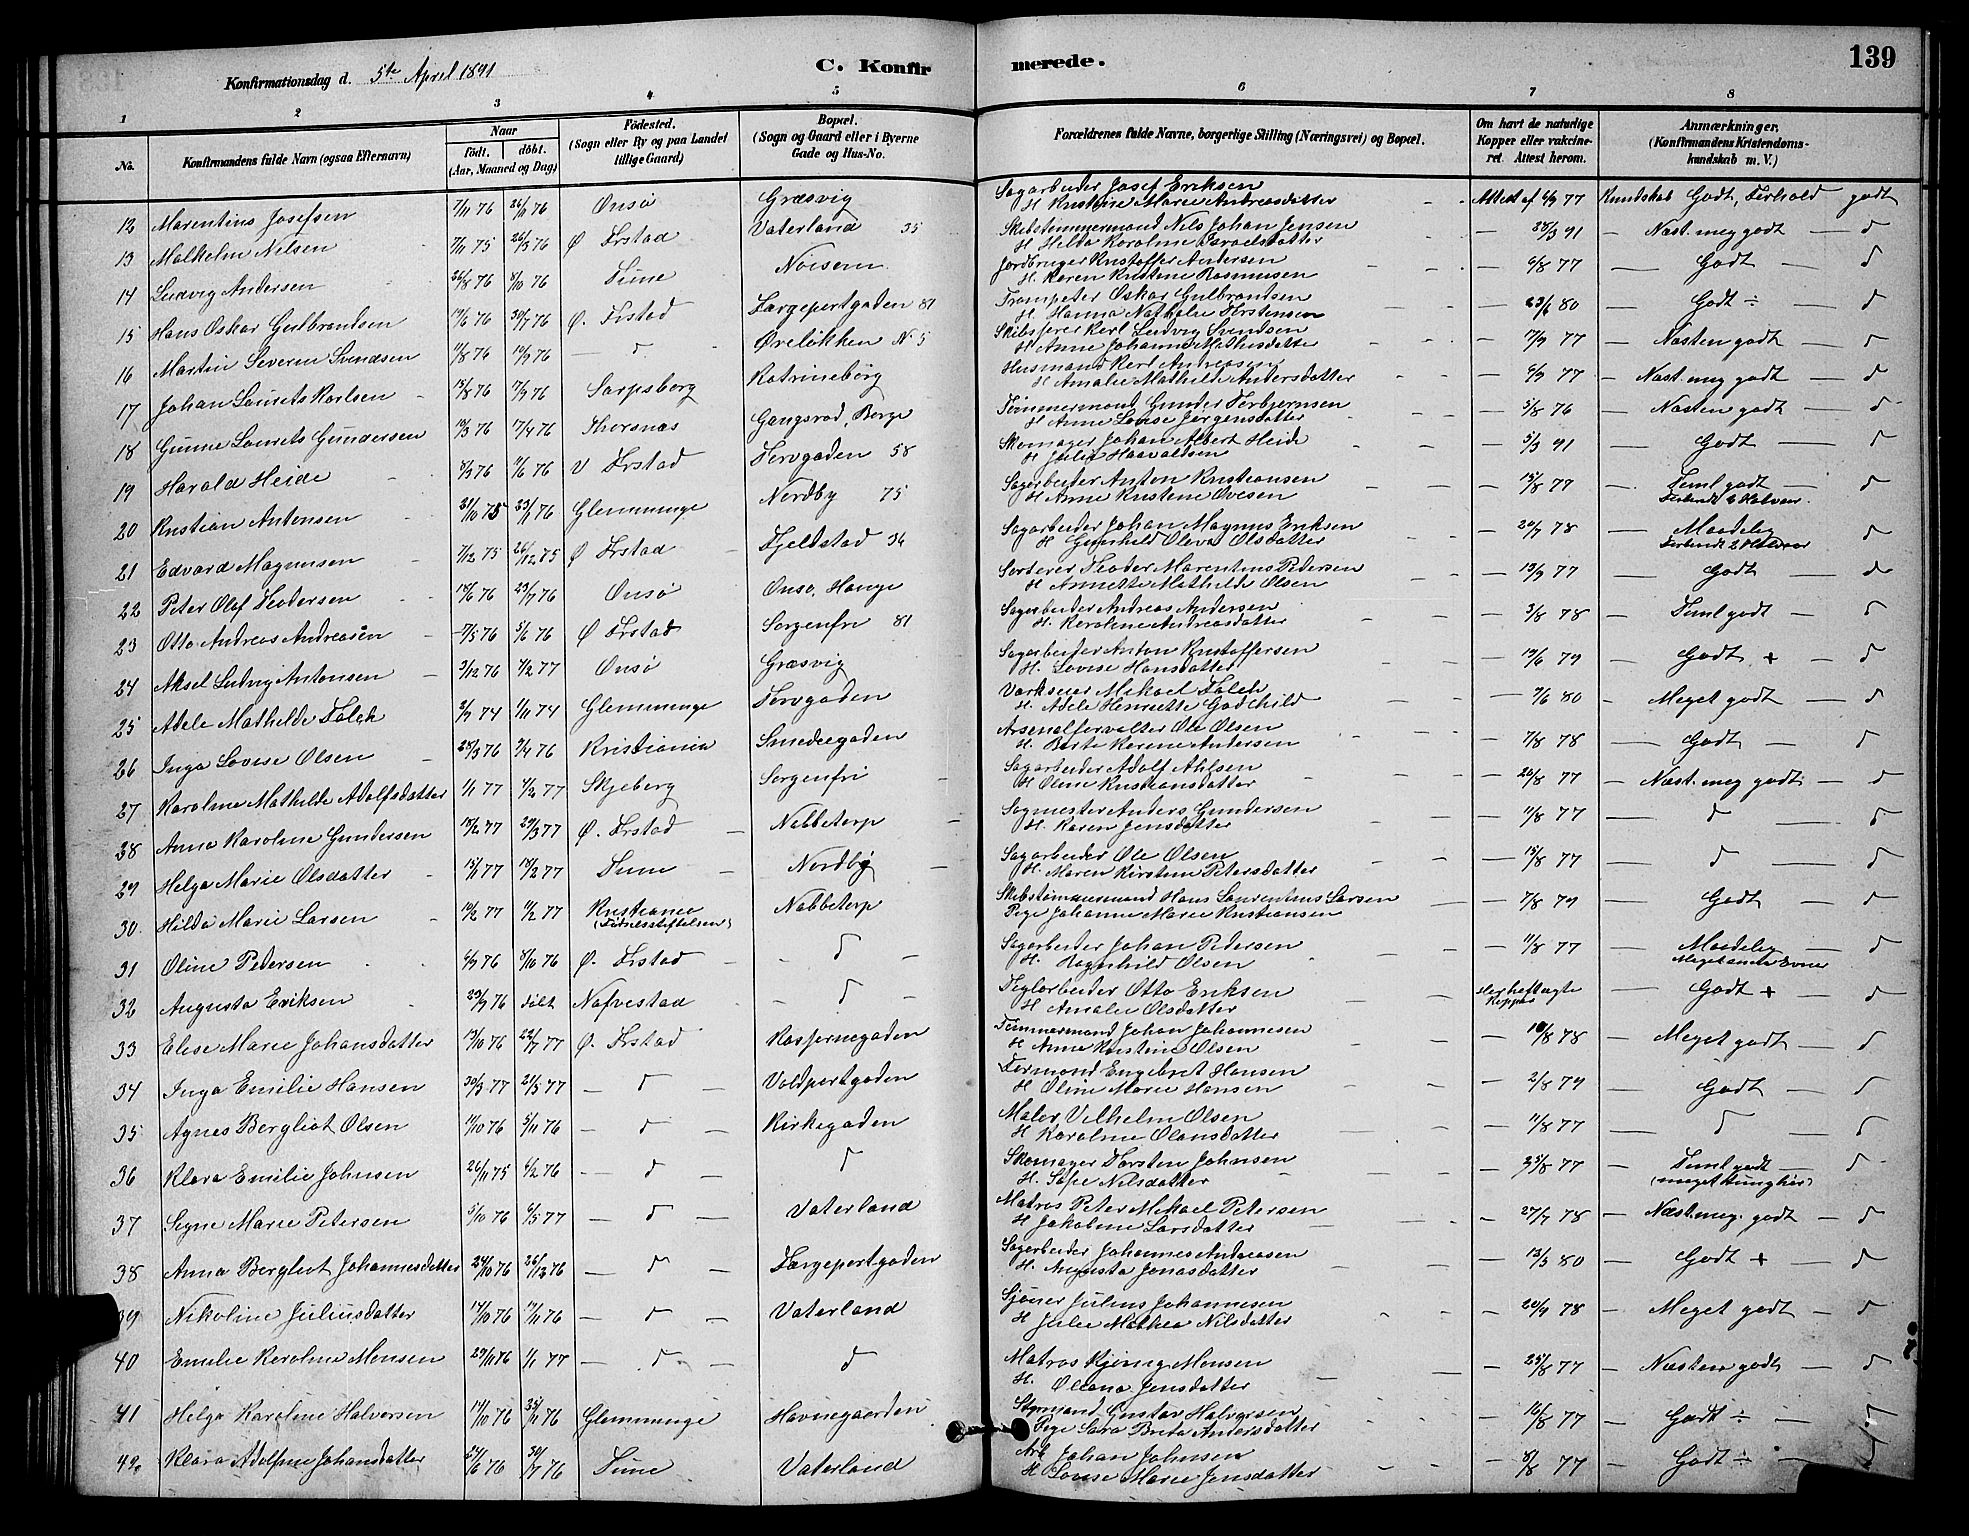 Konfirmationsdag d. 5te April 1891
C. Konfirmerede.
139
1 2 3 4 5 6 7 8
No.
Konfirmandens fulde Navn (ogsaa Efternavn)
Naar
födt. döbt.
(Aar, Maaned og Dag)
Födested.
(Sogn eller By og paa Landet
tillige Gaard)
Bopæl.
(Sogn og Gaard eller i Byerne
Gade og Hus-No.
Forældrenes fulde Navne, borgerlige Stilling (Næringsvei) og Bopæl.
Om havt de naturlige
Kopper eller vakcine-
ret. Attest herom.
Anmærkninger.
(Konfirmandens Kristendoms-
kundskab m. V.)
12 Marentius Josefsen 7/11 76 26/11 76 Onsö Græsvig Sagarbeider Josef Eriksen Attest af 6/9 77 Kundskab Godt, Forhold godt
H Kristine Marie Andreasdatter
13 Malkolm Nilsen 7/11 75 26/3 76 Ø Frstad Vaterland 35 Skibstømmermand Nils Johan Jensen 28/3 91 Næst. meg godt
H Hilda Karoline Israelsdatter
14 Ludvig Andersen 26/8 76 8/10 76 Tune Jordbruger Kristoffer Andersen 6/8 77 Godt
H. Karen Kristine Rasmusen
15 Hans Oskar Gulbrandsen 19/6 76 30/7 76 Ø. Frstad Færgeportgaden 81 Trompeter Oskar Gulbrandsen 23/6 80 Godt ÷
H. Hanna Nathalie Torstensen
16 Martin Severin Svendsen 11/8 76 10/9 76 Øreløkken No 5 Skibsfører Karl Ludvig Svendsen 17/9 77 Næsten godt
H Anne Johanne Mathisdatter
17 Johan Lauritz Karlsen 15/8 76 17/9 76 Sarpsborg Katrineborg Husmand Karl Andreasen 6/9 77 Næst. meg godt
H Amalie Mathilde Andersdatter
18 Gunne Laurits Gundersen 10/3 76 17/4 76 Thorsnæs Gangsrød, Borge Tömmermand Gunder Torbjørnsen 5/8 76 Næsten godt
H Anne Lovise Jørgensdatter
19 Harald Heide 8/3 76 11/6 76 V Frstad Torvgaden 58 Skomager Johan Albert Heide 5/3 91 Godt
H Julie Haavaldsen
20 Kristian Antonsen 21/10 75 23/1 76 Glemminge Nordby 75 Sagarbeider Anton Kristiansen 15/8 77 Teml godt
H Anne Kristine Ovesen
21 Edvard Magnusen 7/12 75 26/12 75 Ø Frstad Fjeldstad 34 Sagarbeider Johan Magnus Eriksen 20/7 78 Maadelig
H Gunhild Oleva Olsdatter
22 Peter Olaf Theodersen 18/6 76 23/7 76 Onsö Onsö, Hauge Sorterer Theodor Marentius Pedersen 19/9 77 Godt
H Annette Mathilde Olsen
23 Otto Andreas Andreasen 7/5 76 5/6 76 Ø Frstad Sorgenfri 81 Sagarbeider Andreas Andersen 3/8 78 Teml godt
H. Karoline Andreasdatter
24 Aksel Ludvig Antonsen 3/12 76 4/2 77 Onsö Græsvig Sagarbeider Anton Kristoffersen 19/6 79 Godt +
H. Lovise Hansdatter
25 Adele Mathilde Falch 2/9 74 1/11 74 Glemminge Torvgaden Mikael Falch 9/6 80 Meget godt
H. Adele Henriette Godchild
26 Inga Lovise Olsen 25/3 76 9/4 76 Kristiania Smedegaden Arsenalforvalter Ole Olsen 7/8 78 Godt
H. Berte Karine Andersen
27 Karoline Mathilde Adolfsdatter 1/1 77 4/2 77 Skjeberg Sorgenfri Sagarbeider Adolf Ahlsen 20/8 77 Næst. meg godt
H Oline Kristiansdatter
28 Anna Karoline Gundersen 18/2 77 29/3 77 Ø. Frstad Nabbetorp Sagmester Anders Gundersen 11/8 77
H. Karen Jensdatter
29 Helga Marie Olsdatter 15/1 77 18/2 77 Tune Nordby Sagarbeider Ole Olsen 15/8 77
H. Maren Kirstine Petersdatter
30. Hilda Marie Larsen 10/2 77 11/2 77 Kristiania Nabbetorp Skibstömmermand Hans Laurentius Larsen 7/8 79 Godt
(Fødselsstiftelsen) Pige Johanne Marie Kristiansen
31 Oline Pedersen 6/9 76 8/10 76 Ø. Frstad Sagarbeider Johan Pedersen 11/8 77 Maadelig
H. Ragnhild Olsen
32 Augusta Eriksen 29/9 76 døbt Nafvestad Teglarbeider Otto Eriksen Godt +
H Amalie Olsdatter
33 Elise Marie Johansdatter 13/10 76 22/7 77 Ø. Frstad Kasernegaden Tömmermand Johan Johannesen 10/8 78 Meget godt
H Anne Kristine Olsen
34 Inga Emilie Hansen 30/3 77 21/5 77 Voldportgaden Formand Engebret Hansen 2/8 79 Godt
H Oline Marie Hansen
35 Agnes Bergliot Olsen 11/10 76 5/11 76 Kirkegaden Maler Vilhelm Olsen 11/8 77
H Karoline Olausdatter
36 Klara Emilie Johnsen 26/11 75 6/2 76 Skomager Torsten Johnsen 25/8 77 Teml godt
H. Sofie Nilsdatter (meget tunghør)
37 Signe Marie Petersen 5/10 76 6/5 77 Vaterland Matros Peter Mikael Petersen 27/7 78 Næst. meg. godt
H Jakobine Larsdatter
38 Anna Bergliot Johannesdatter 24/10 76 26/12 76 Færgeportgaden Sagarbeider Johannes Andreasen 13/3 80 Godt +
H. Augusta Jonasdatter
39 Nikoline Juliusdatter 14/10 76 19/11 76 Vaterland Sjømer Julius Johannesen 20/9 78 Meget godt
H Julie Mathea Nilsdatter
40 Emilie Karoline Monsen 29/11 76 1/1 77 Matros Kjönig Monsen 25/8 77 Næsten godt
H. Oleana Jensdatter
41 Helga Karoline Halvorsen 14/10 76 25/11 76 Glemminge Havnegaarden Styrmand Gustav Halvorsen 16/8 77 Godt ÷
Pige Sara Brita Andersdatter
42. Klara Adolfine Johansdatter 24/6 76 30/7 76 Tune Vaterland Arb Johan Johnsen 8/8 77 Godt ÷
H Lovise Marie Jensdatter